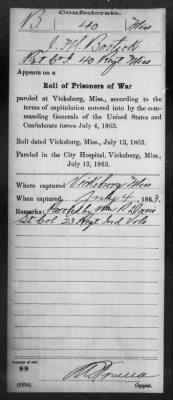 Confederate.
B 40 Miss
J. W. Bostick
Pvt Co I, 40 Regt Miss
Appears on a
Roll of Prisoners of War
paroled at Vicksburg, Miss., according to the
terms of capitulation entered into by the com-
manding Generals of the United States and
Confederate forces July 4, 1863.
Roll dated Vicksburg, Miss., July 13, 1863.
Paroled in the City Hospital, Vicksburg, Miss.,
July 13, 1863.
Where captured Vicksburg Miss
When captured July 4, 1863.
Remarks: Paroled by Wm P. Davis
Lt Col 23 Regt Ind Vols
Number of roll:
88
Copyist.